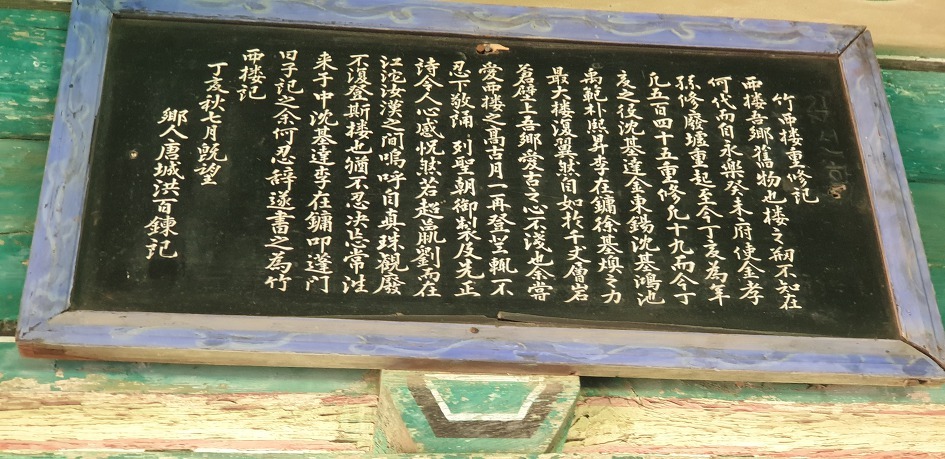 竹西楼重修記
西楼吾鄉舊物也楼之刱不知在
何代而自永樂癸未府使金孝
孫修廢墟重起至今丁亥為年
凡五百四十五重修凡十九而今丁
亥之役沈基達金東錫沈基鴻池
禹範朴熙昇李在鏞徐基煥之力
最大楼復翼然自如於千丈層岩
蒼壁上吾鄉愛古之心不淺也余嘗
愛西楼之高古月一再登登輒不
忍下敬誦 列聖朝御製及先正
詩令人心感怳然若超嬴劉而在
江沱汝漢之間嗚呼自真珠觀廢
不復登斯楼也猶不忍決忘常往
来于中沈基達李在鏞叩蓬門
旧予記之余何忍辞遂書之為竹
西楼記
丁亥秋七月旣望
鄉人唐城洪百鍊記